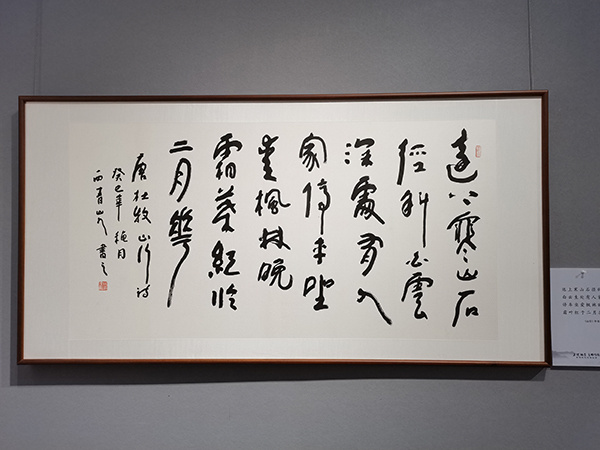 遠上寒山石
径斜白雲
深處有人
家停車坐
愛楓林晚
霜葉紅於
二月華
唐杜牧山行詩
癸巳年穐月
山人書之